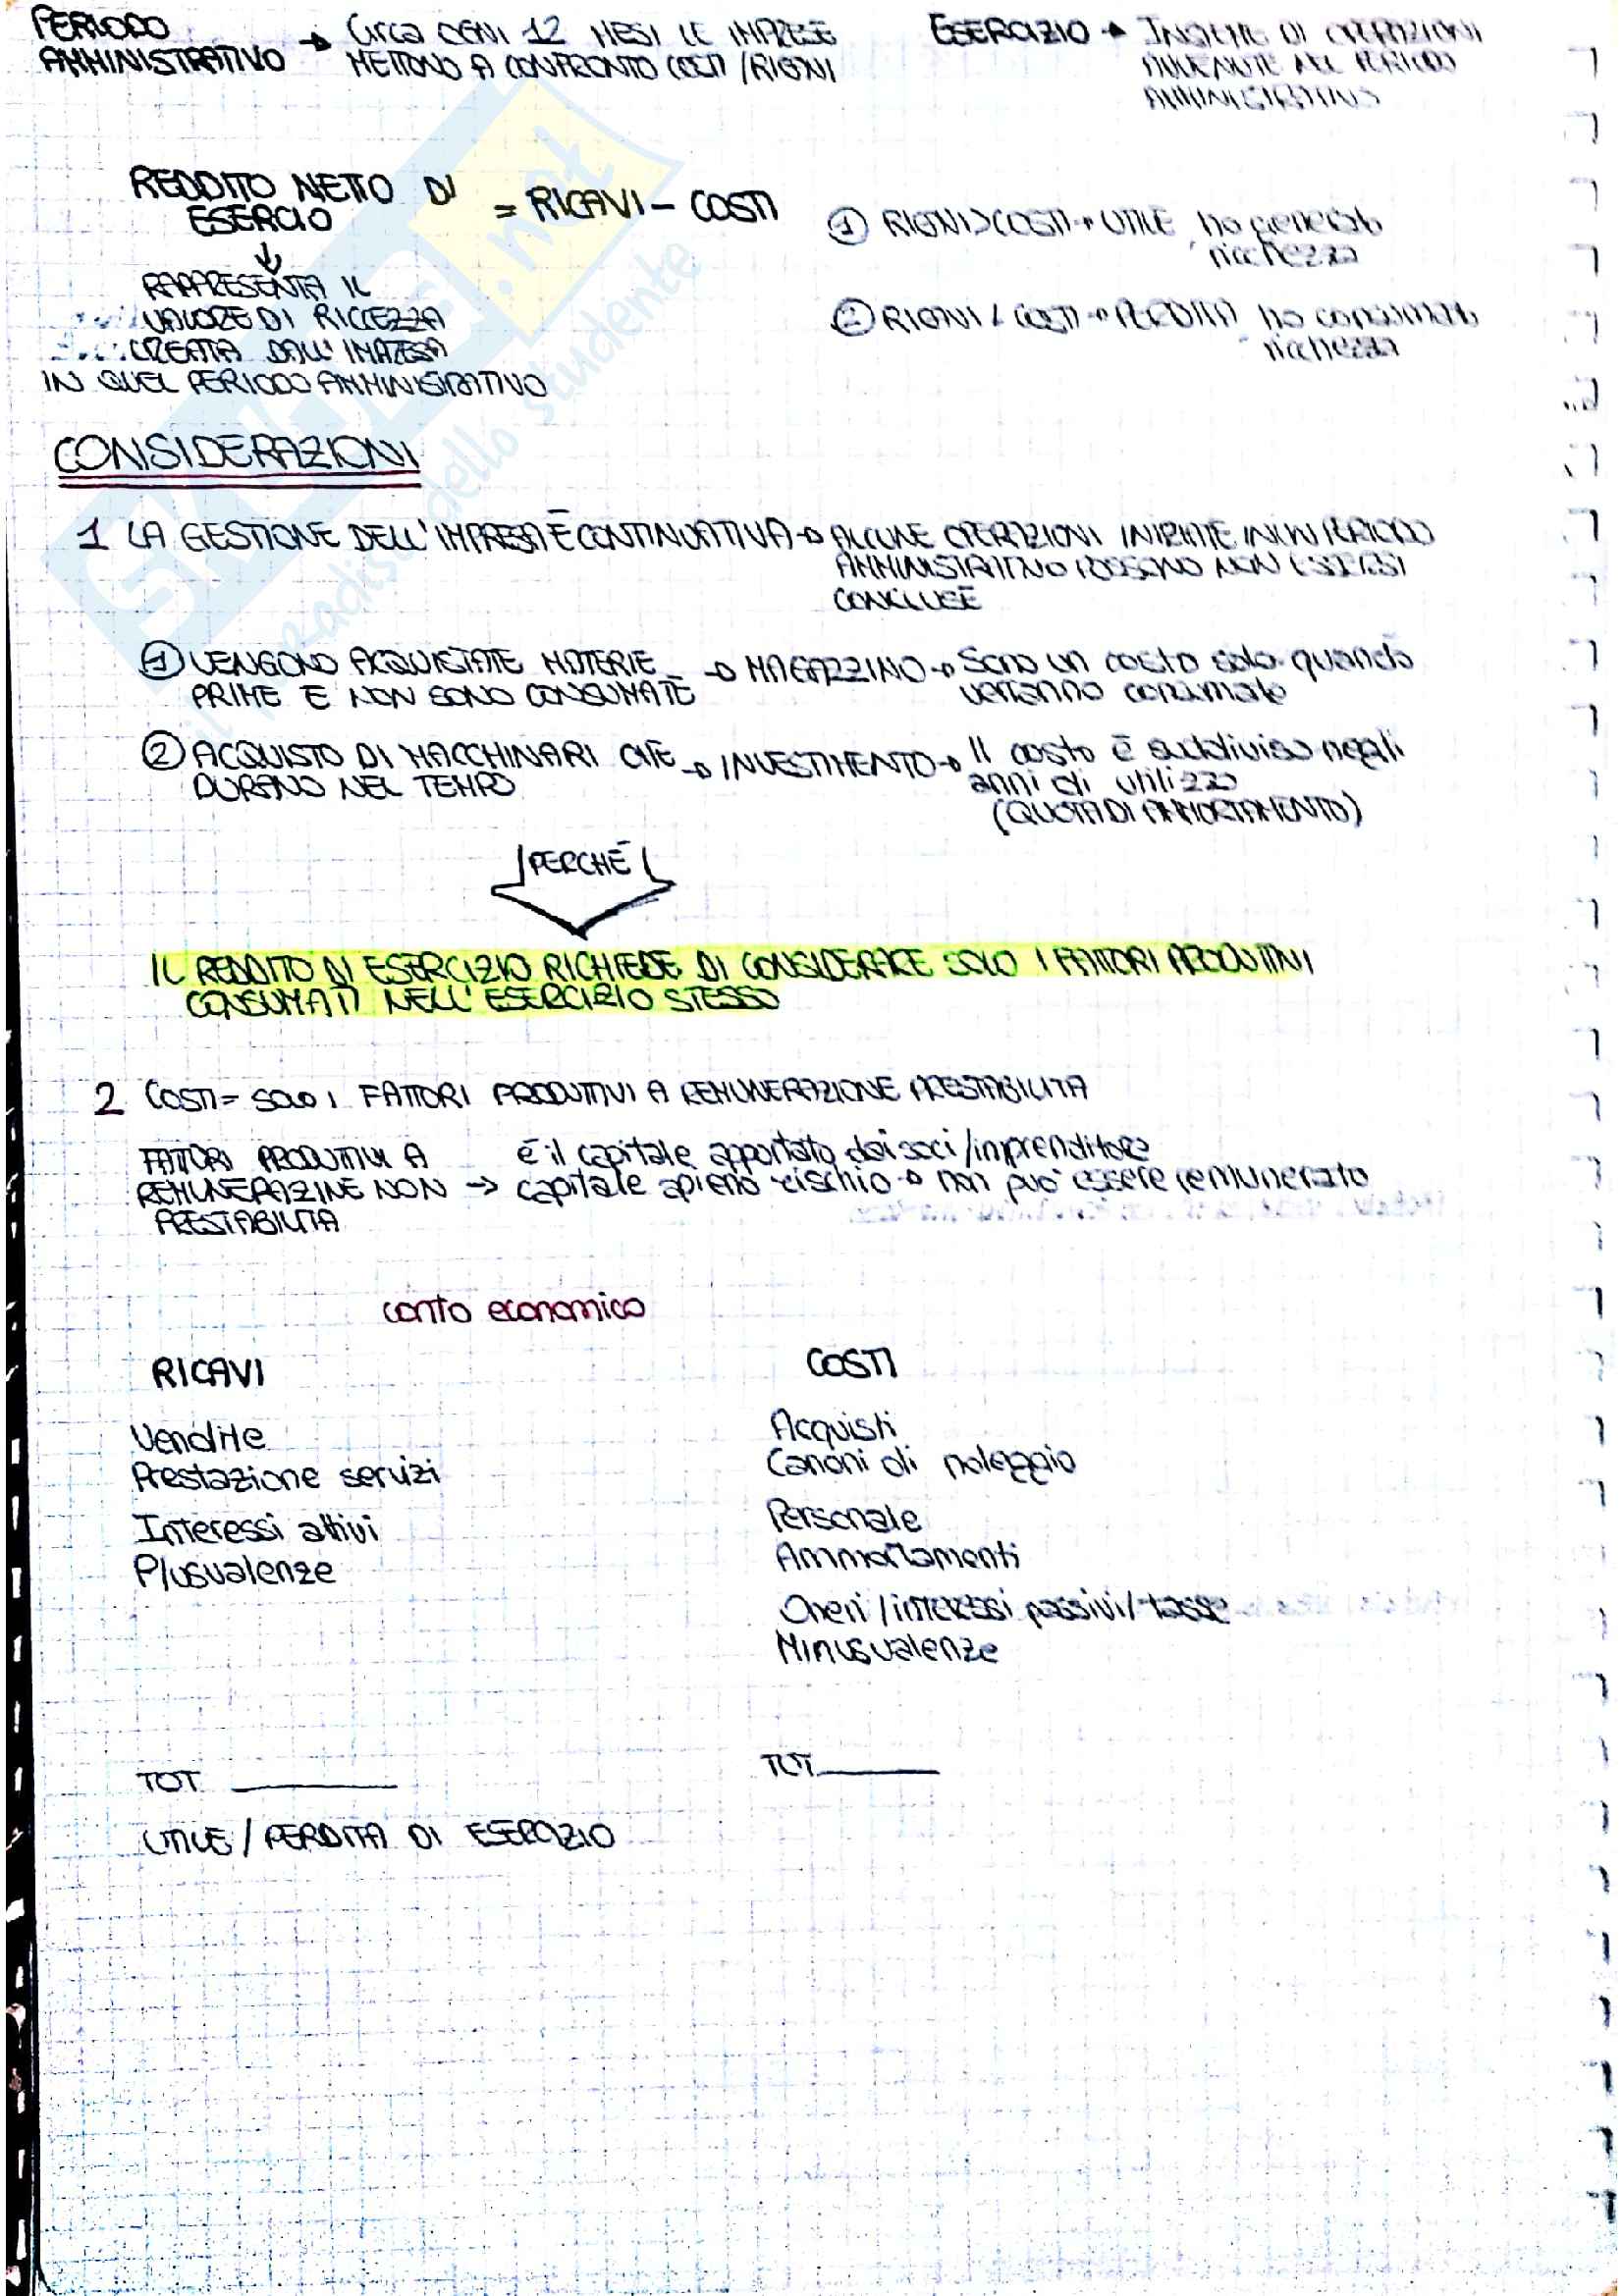 PERIODO
AMMINISTRATIVO → Circa OGNI 12 MESI LE IMPRESE
METTONO A CONFRONTO COSTI / RICAVI
ESERCIZIO → INSIEME DI OPERAZIONI
AVVENUTE NEL PERIODO
AMMINISTRATIVO
REDDITO NETTO DI
ESERCIO
= RICAVI - COSTI
↓
RAPPRESENTA IL
VALORE DI RICCEZZA
CREATA DALL'IMPRESA
IN QUEL PERIODO AMMINISTRATIVO
① RICAVI > COSTI → UTILE ho generato
ricchezza
② RICAVI < COSTI → PERDITA ho consumato
ricchezza
CONSIDERAZIONI
1 LA GESTIONE DELL'IMPRESA È CONTINUATIVA → ALCUNE OPERAZIONI INIZIATE IN UN PERIODO
AMMINISTRATIVO POSSONO NON ESSERSI
CONCLUSE
① VENGONO ACQUISTATE MATERIE
PRIME E NON SONO CONSUMATE → MAGAZZINO → Sono un costo solo quando
verranno consumate
② ACQUISTO DI MACCHINARI CHE
DURANO NEL TEMPO → INVESTIMENTO → Il costo è suddiviso negli
anni di utilizzo
(QUOTA DI AMMORTAMENTO)
PERCHÉ
IL REDDITO DI ESERCIZIO RICHIEDE DI CONSIDERARE SOLO I FATTORI PRODUTTIVI
CONSUMATI NELL'ESERCIZIO STESSO
2 COSTI = SOLO I FATTORI PRODUTTIVI A REMUNERAZIONE PRESTABILITA
FATTORI PRODUTTIVI A
REMUNERAZINE NON →
PRESTABILITA
è il capitale apportato dai soci/imprenditore
capitale a pieno rischio → non può essere remunerato
conto economico
RICAVI
Vendite
Prestazione servizi
Interessi attivi
Plusvalenze
TOT
UTILE / PERDITA DI ESERCIZIO
COSTI
Acquisti
Canoni di noleggio
Personale
Ammortamenti
Oneri / interessi passivi / tasse
Minusvalenze
TOT
SKUOLA.net
il paradiso dello studente